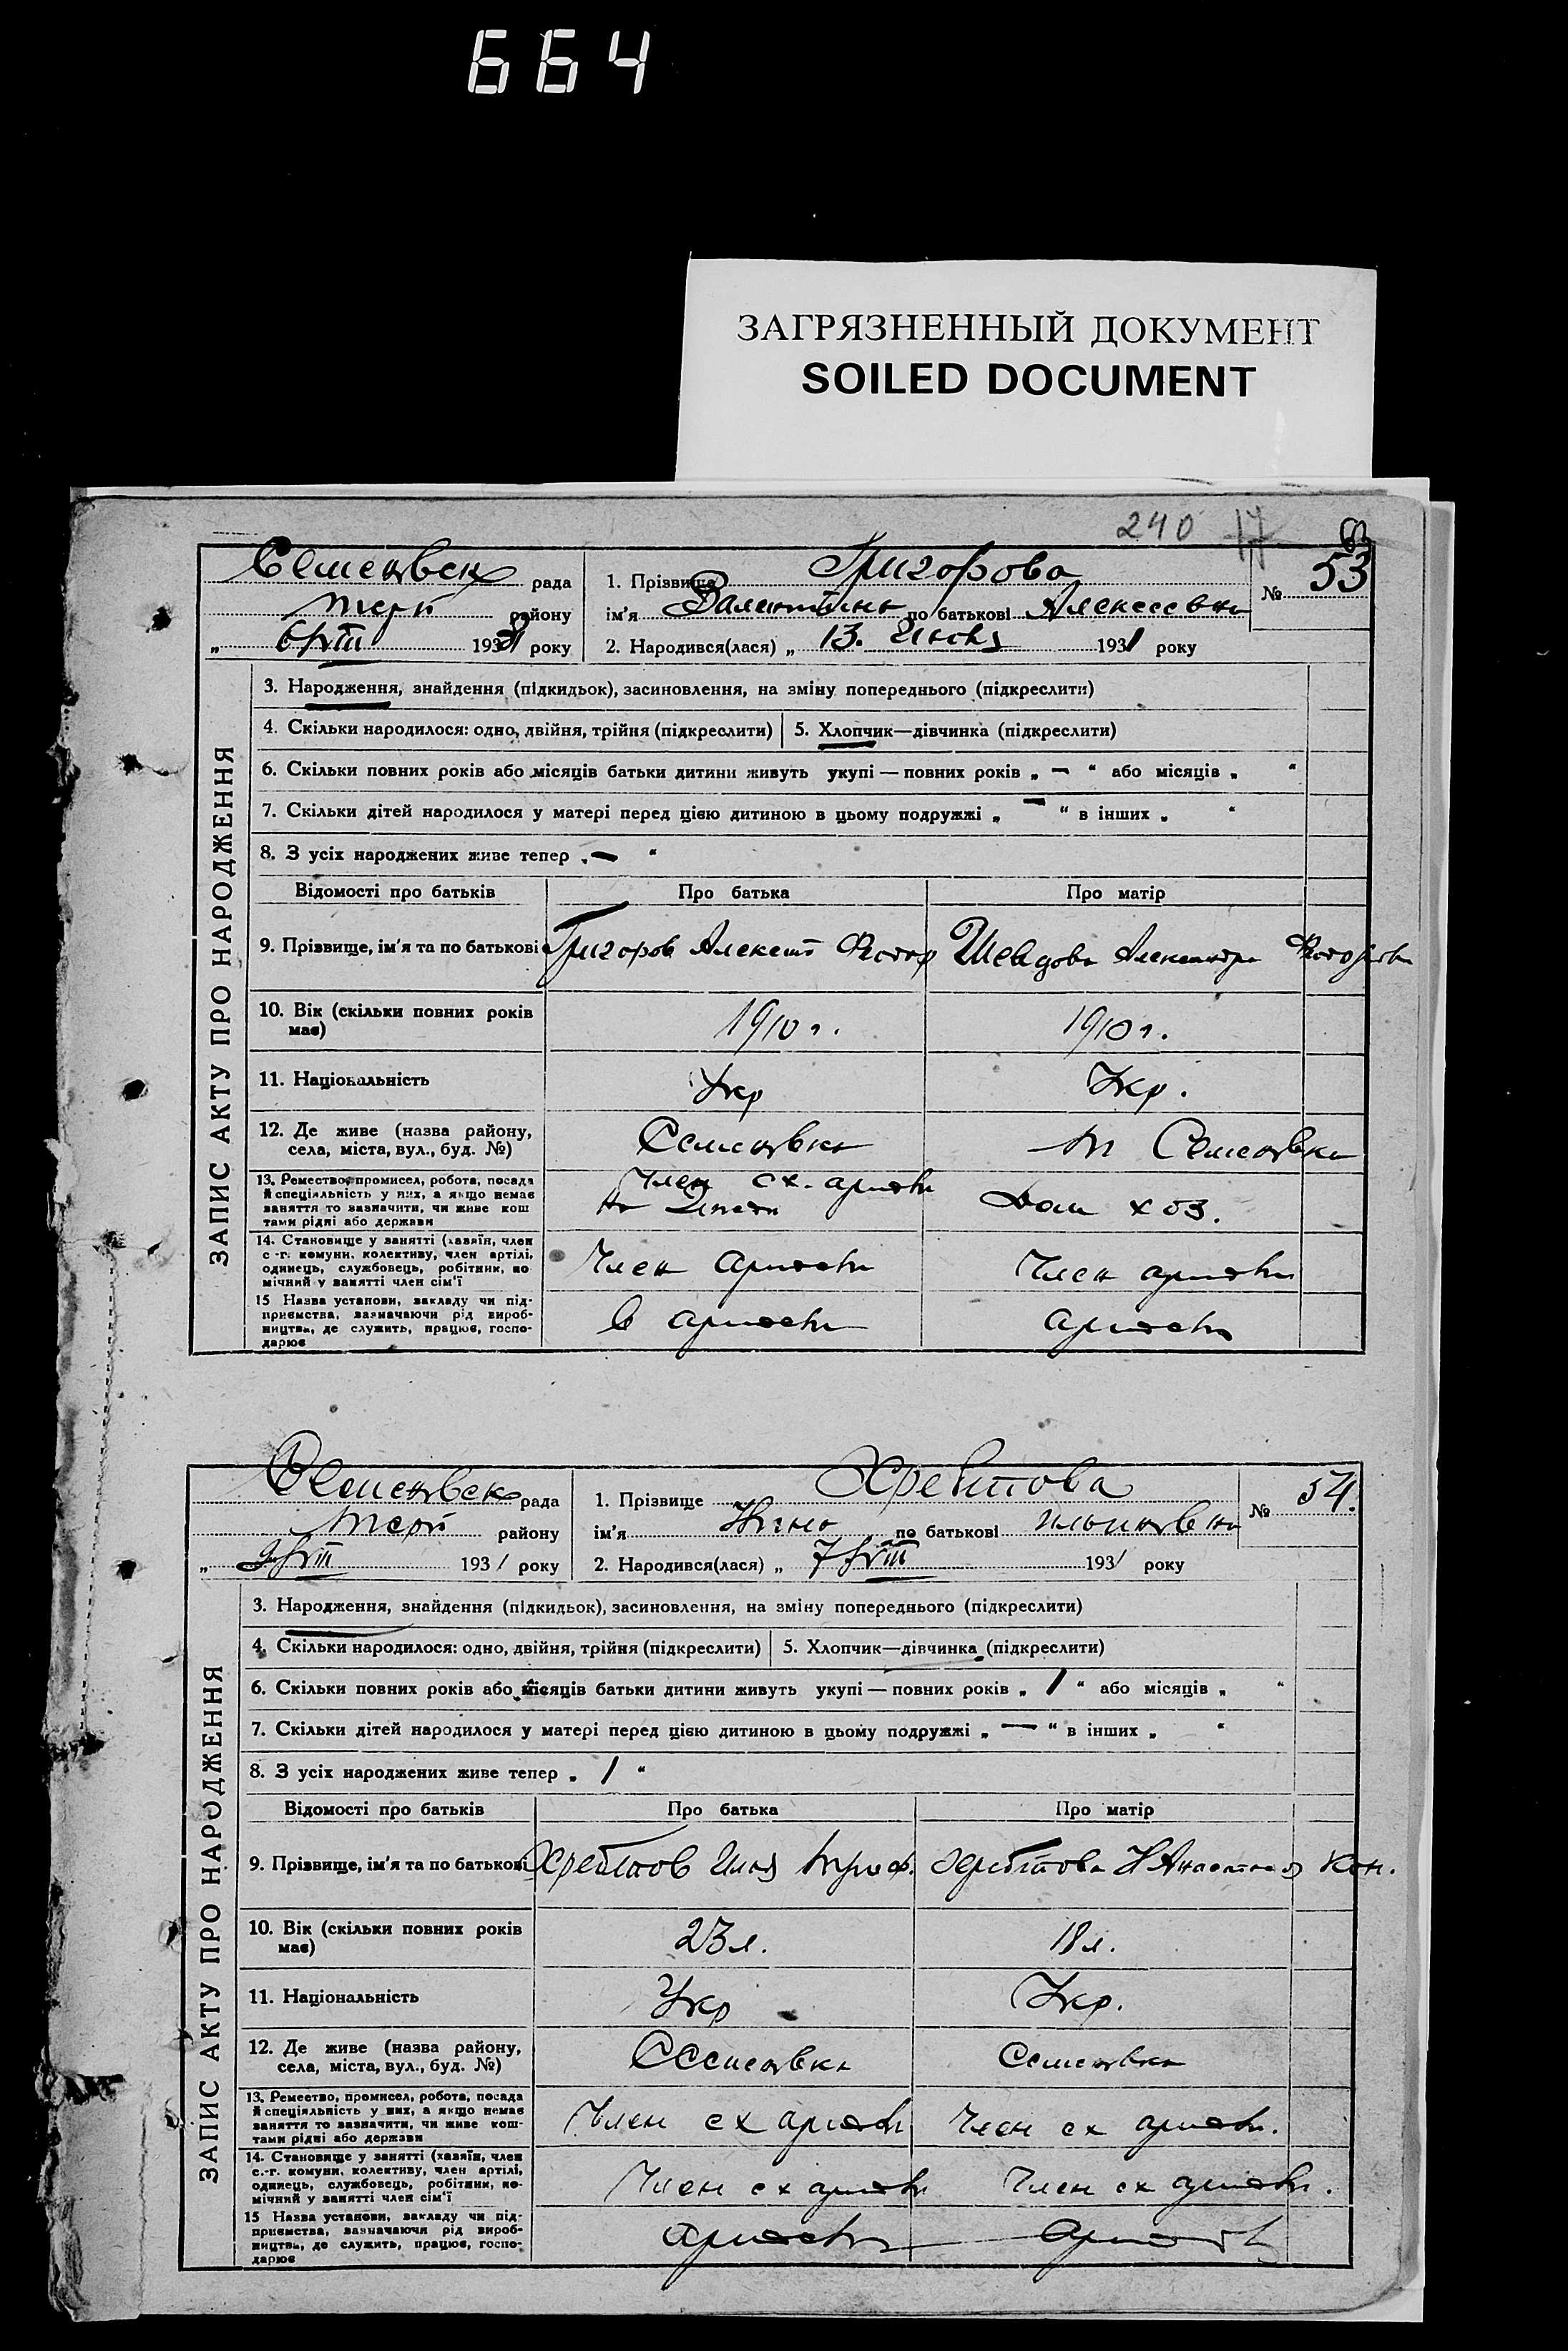 664
ЗАГРЯЗНЕННЫЙ ДОКУМЕНТ
SOILED DOCUMENT
240 17
ЗАПИС АКТУ ПРО НАРОДЖЕННЯ
Семеновск рада
району
6/VIII 1931 року
1. Прізвище Григорова
№ 53
ім'я Валентина по батькові Алексеевна
2. Народився(лася) „ 13. 1931 року
3. Народження, знайдення (підкидьок), засиновлення, на зміну попереднього (підкреслити)
4. Скільки народилося: одно, двійня, трійня (підкреслити) 5. Хлопчик—дівчинка (підкреслити)
6. Скільки повних років або місяців батьки дитини живуть укупі — повних років „ — “ або місяців „ “
7. Скільки дітей народилося у матері перед цією дитиною в цьому подружжі „ — “ в інших „ “
8. З усіх народжених живе тепер „ — “
Відомості про батьків Про батька Про матір
9. Прізвище, ім'я та по батькові Григоров Алексей Федор Шевцова Александра Федоровна
10. Вік (скільки повних років має) 1910 г. 1910 г.
11. Національність Укр Укр.
12. Де живе (назва району, села, міста, вул., буд. №) Семеновка Семеновка
13. Ремество, промисел, робота, посада й спеціяльність у них, а якщо немає заняття то зазначити, чи живе кош тами рідні або держави Член сх. артели Дом хоз.
14. Становище у занятті (хазяїн, член с.-г. комуни, колективу, член артілі, одинець, службовець, робітник, помічний у занятті член сім'ї Член артели Член артели
15 Назва установи, закладу чи підприємства, зазначаючи рід виробництва, де служить, працює, господарює в артели артели
ЗАПИС АКТУ ПРО НАРОДЖЕННЯ
Семеновск рада
району
„ 9/VIII 1931 року
1. Прізвище Хребтова
№ 54.
ім'я Нина по батькові Ильинична
2. Народився(лася) „ 7/VIII 1931 року
3. Народження, знайдення (підкидьок), засиновлення, на зміну попереднього (підкреслити)
4. Скільки народилося: одно, двійня, трійня (підкреслити) 5. Хлопчик—дівчинка (підкреслити)
6. Скільки повних років або місяців батьки дитини живуть укупі — повних років „ 1 “ або місяців „ “
7. Скільки дітей народилося у матері перед цією дитиною в цьому подружжі „ — “ в інших „ “
8. З усіх народжених живе тепер „ 1 “
Відомості про батьків Про батька Про матір
9. Прізвище, ім'я та по батькові Хребтов Илья Хребтова Анастасия Кон.
10. Вік (скільки повних років має) 23 л. 18 л.
11. Національність Укр Укр.
12. Де живе (назва району, села, міста, вул., буд. №) Семеновка Семеновка
13. Ремество, промисел, робота, посада й спеціяльність у них, а якщо немає заняття то зазначити, чи живе коштами рідні або держави Член сх артели Член сх артели.
14. Становище у занятті (хазяїн, член с.-г. комуни, колективу, член артілі, одинець, службовець, робітник, помічний у занятті член сім'ї Член сх артели Член сх артели.
15 Назва установи, закладу чи підприємства, зазначаючи рід виробництва, де служить, працює, господарює артели артели